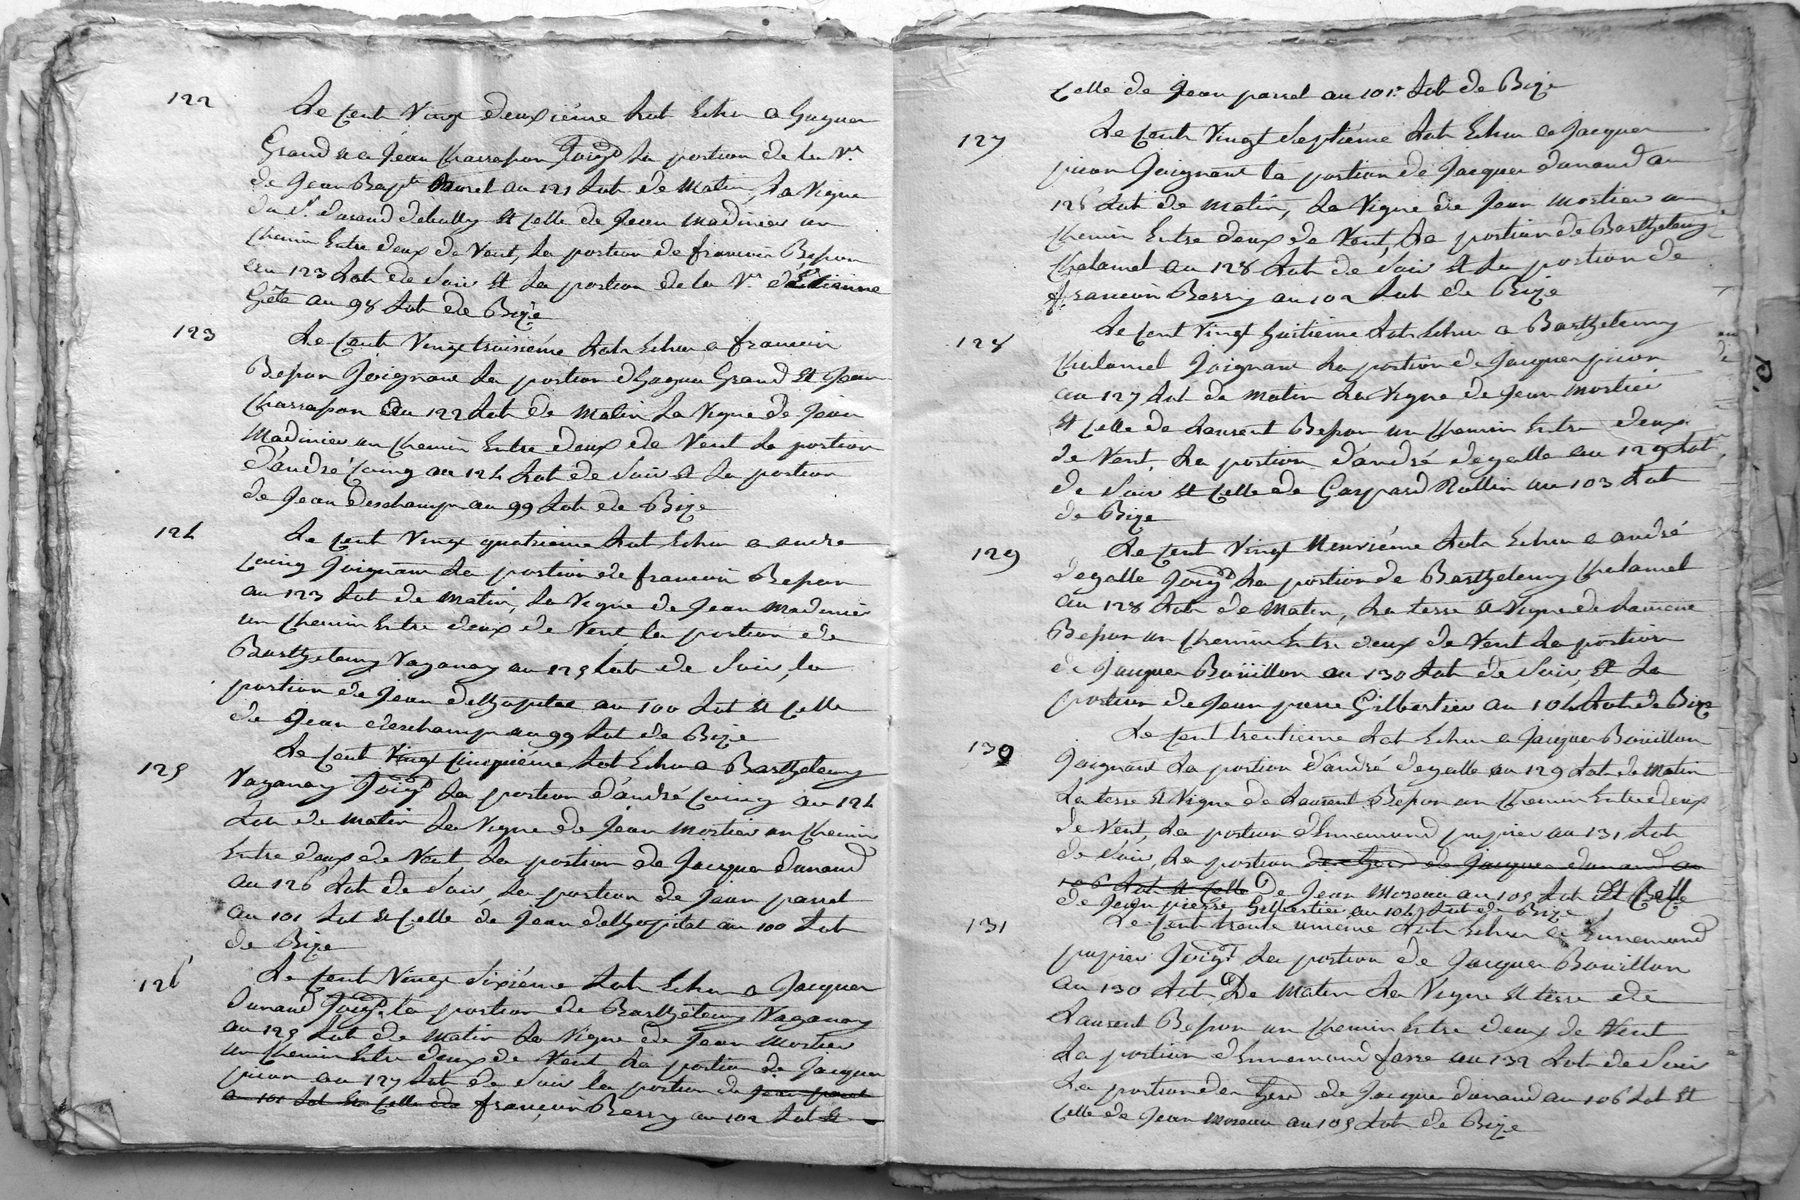 122
Le Cent Vingt deuxiéme Lot Echu a Huguer
Grand et a Jean Charrapon Joigt La portion de la Ve
de Jean Bapte Burel au 121 Lot de Matin, La Vigne
du Sr. durand et celle de Jean Madinier un
Chemin Entre deux de Vent, La portion de francois Bepon
au 123 Lot de Soir et La portion de la Ve d'Etienne
au 98 Lot de Bize
123
Le Cent Vingt troisiéme Lot Echu a francois
Bepon Joignant La portion d'Huguer Grand et Jean
Charrapon au 122 Lot de Matin La Vigne de Jean
Madinier un Chemin Entre deux de Vent La portion
d'andré Coing au 124 Lot de Soir et La portion
de Jean deschamp au 99 Lot de Bize
124
Le Cent Vingt quatrieme Lot Echu a andre
Coing Joignant La portion de francois Bepon
au 123 Lot de Matin, La Vigne de Jean Madinier
un Chemin Entre deux de Vent la portion de
Barthelemy Vaganay au 125 Lot de Soir, la
portion de Jean delhopital au 100 Lot et Celle
de Jean deschamp au 99 Lot de Bize
125
Le Cent Vingt Cinquième Lot Echu a Barthelemy
Vaganay Joigt La portion d'andré Coing au 124
Lot de Matin La Vigne de Jean Mortier un Chemin
Entre deux de Vent La portion de Jacque dunand
au 126 Lot de Soir, La portion de Jean parrel
au 101 Lot et Celle de Jean delhopital au 100 Lot
de Bize
126
Le Cent Vingt Sixiéme Lot Echu a Jacque
dunand Joigt la portion de Barthelemy Vaganay
au 125 Lot de Matin La Vigne de Jean Mortier
un Chemin Entre deux de Vent La portion de Jacque
picon au 127 Lot de Soir la portion de Jean parrel
au 101 Lot et Celle de françois Berry au 102 Lot et
Celle de Jean parrel au 101e Lot de Bize
127
Le Cent Vingt Septiéme Lot Echu a Jacque
picon Joignant la portion de Jacque dunand au
126 Lot de Matin, La Vigne de Jean Mortier un
Chemin Entre deux de Vent, La portion de Barthelemy
Chalamel au 128 Lot de Soir et La portion de
francois Berry au 102 Lot de Bize
128
Le Cent Vingt huitieme Lot Echu a Barthelemy
Chalamel Joignant La portion de Jacque picon
au 127 Lot de Matin La Vigne de Jean Mortier
et Celle de Laurent Bepon un Chemin Entre deux
de Vent, La portion d'andré degalle au 129 Lot
de Soir et Celle de Gaspard Rollin au 103 Lot
de Bize
129
Le Cent Vingt Neuviéme Lot Echu a andré
degalle Joigt La portion de Barthelemy Chalamel
au 128 Lot de Matin, La terre et Vigne de
Bepon un Chemin Entre deux de Vent La portion
de Jacque Boüillon au 130 Lot de Soir, et La
portion de Jean pierre Gilbertier au 104 Lot de Bize
130
Le Cent trentieme Lot Echu a Jacque Boüillon
Joignant La portion d'andré degalle au 129 Lot de Matin
La terre et Vigne de Laurent Bepon un Chemin Entre deux
de Vent, La portion d'Ennemond papier au 131 Lot
de Soir, La portion des hers de Jacque dunand au
106 Lot et Celle De Jean Moreau au 105 Lot Et Celle
de Jean pierre Gilbertier au 104 Lot de Bize
131
Le Cent trente unieme Lot Echu a Ennemond
papier Joigt La portion de Jacque Bouillon
au 130 Lot De Matin La Vigne et terre de
Laurent Bepon un Chemin Entre deux de Vent
La portion d'Ennemond farre au 132 Lot de Soir
La portion des hers de Jacque dunand au 106 Lot et
Celle de Jean Moreau au 105 Lot de Bize